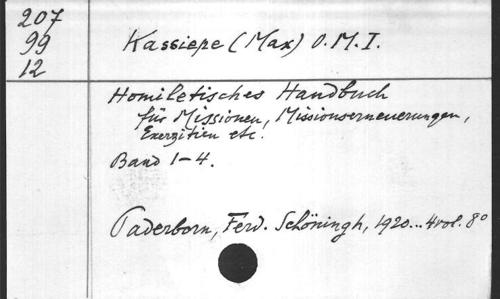 207
99
12
Kassiepe (Max) O.M.I.
Homiletisches Handbuch
für Missionen, Missionserneuerungen,
Exerzitien etc.
Band 1-4.
Paderborn, Ferd. Schöningh, 1920... 4 vol. 8°